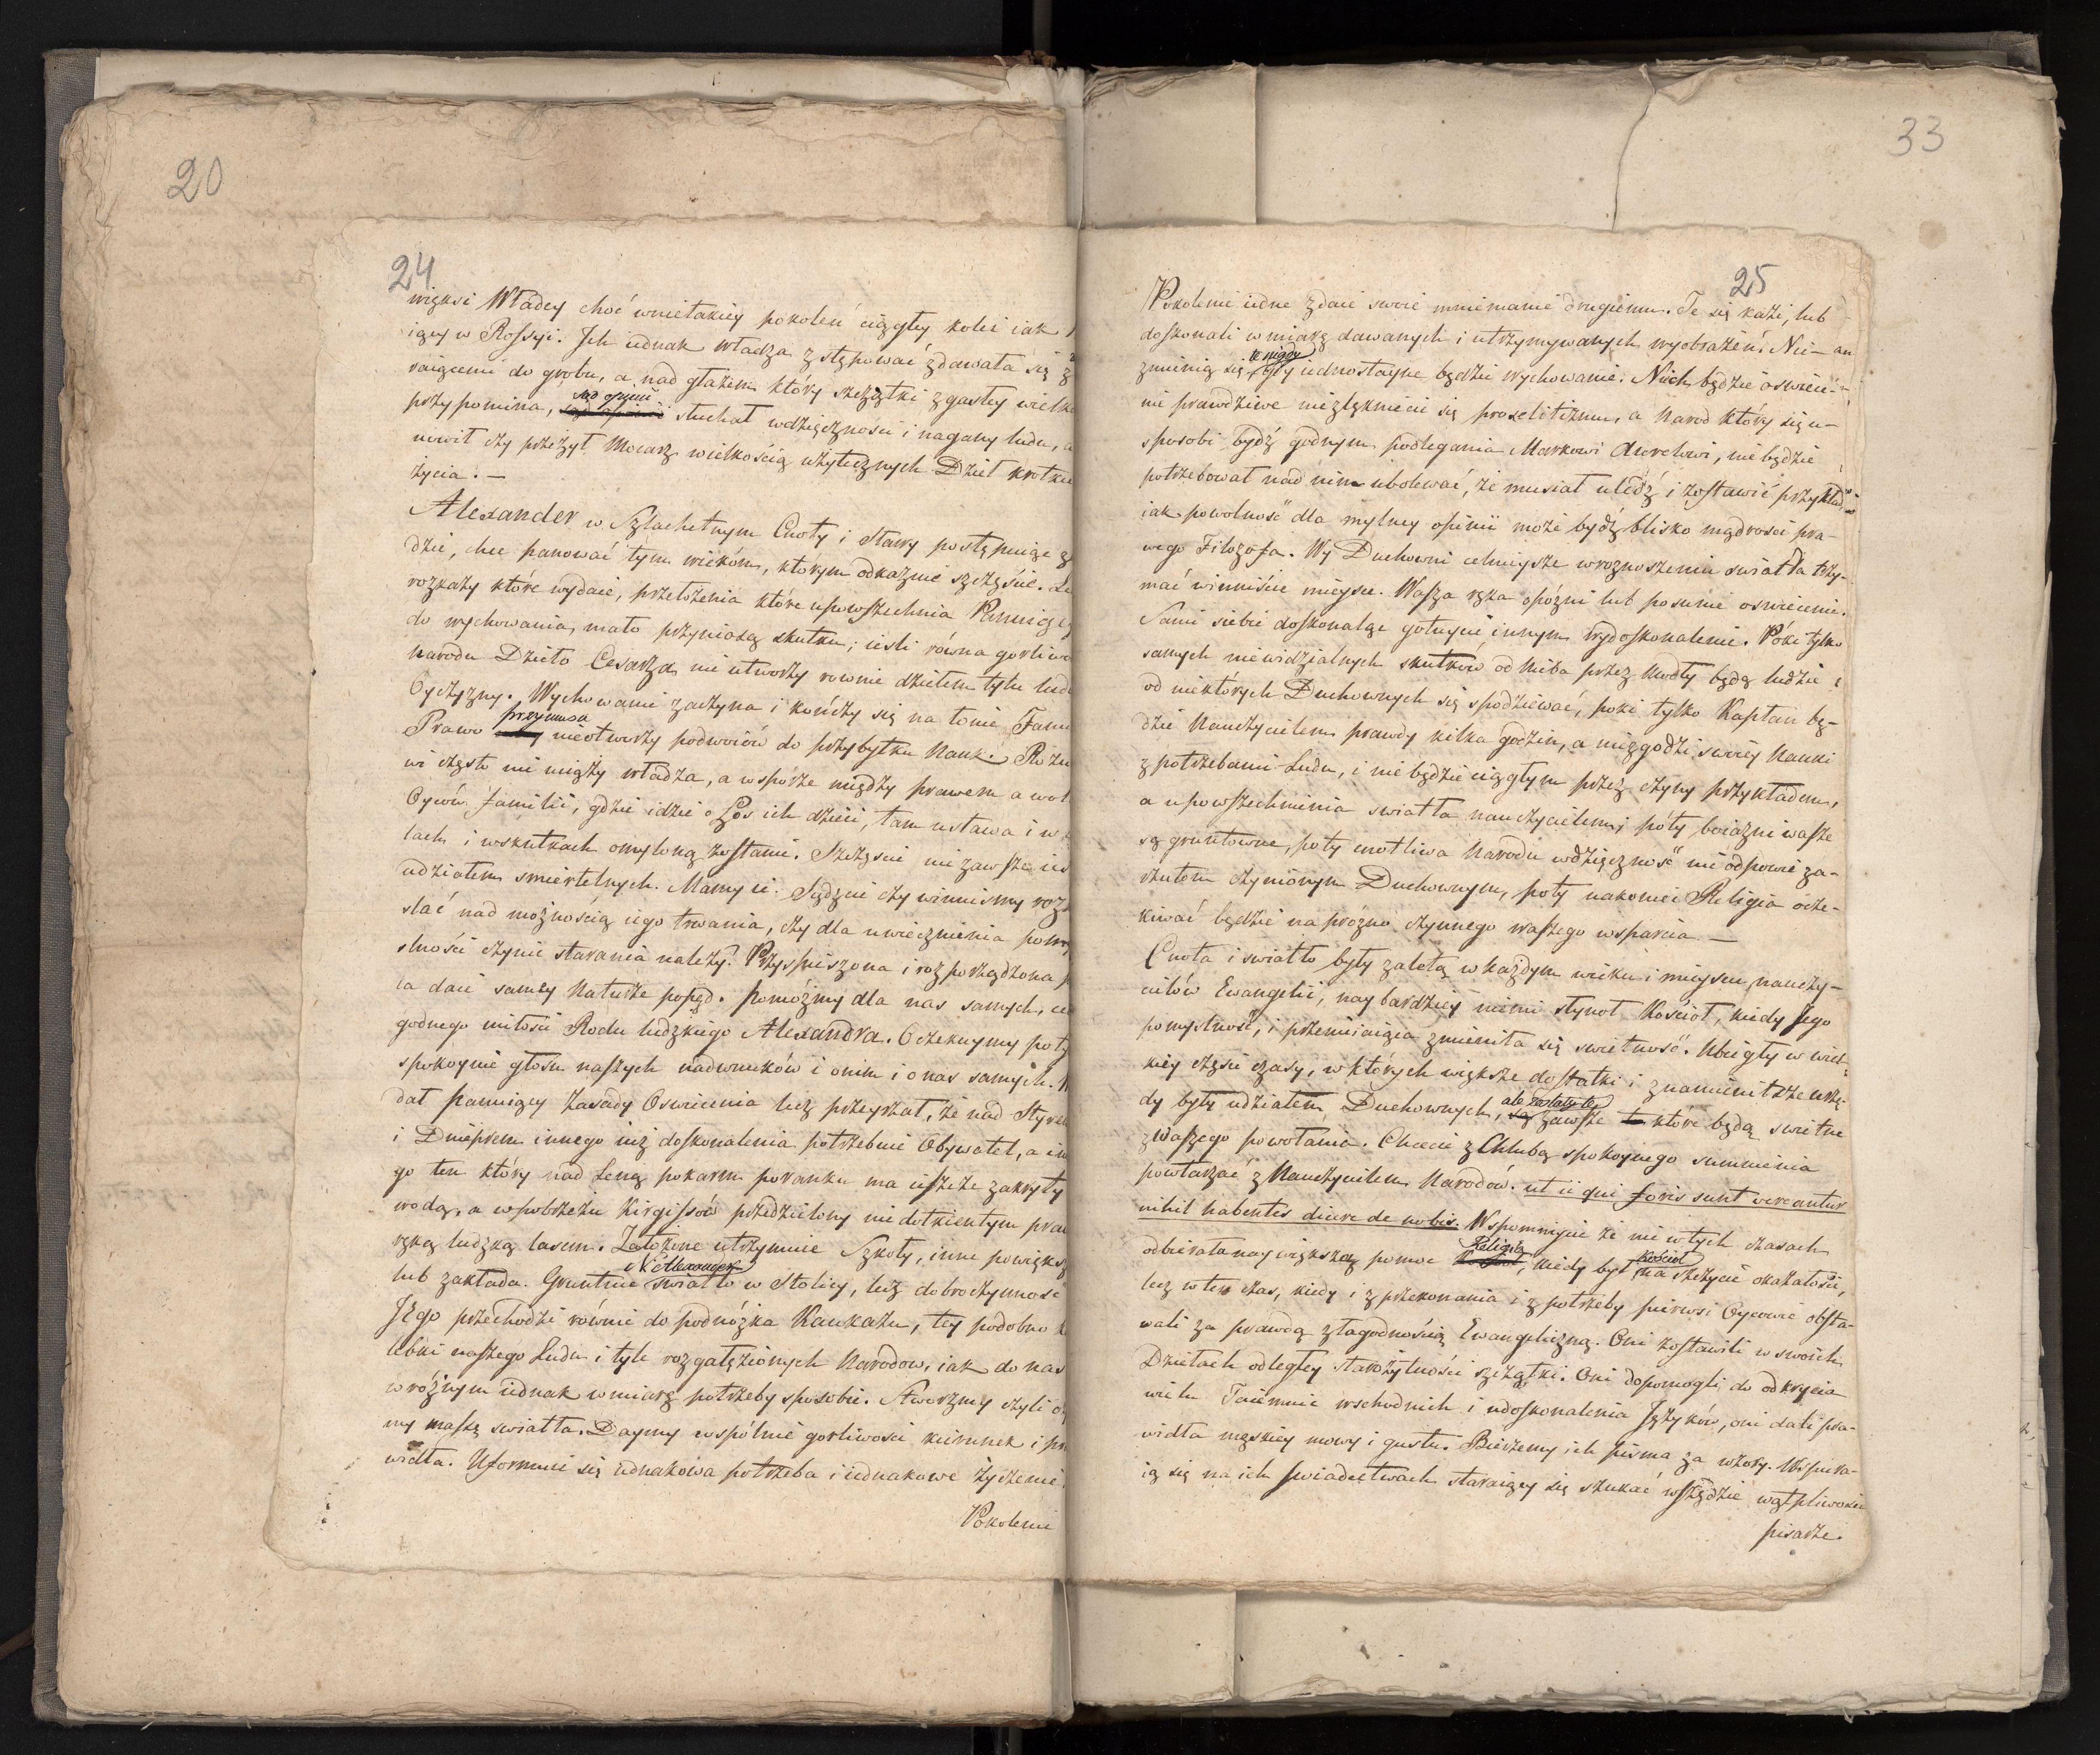 20
24
więksi Władcy choć wnietakiey pokoleń ciągłey kolei iak
iący w Rossyi. Ich iednak władza zstępować zdawała się z
raiącemi do grobu, a nad głazem który szczątki zgasłey wielko
przypomina, sąd opinii słuchał wdzięcznosci i nagany ludu, a
nowił czy przeżył Mocarz wielkością użytecznych Dzieł krotkie
życia. —
Alexander w Szlachetnym Cnoty i Sławy postępuiąc
dzie, chce panować tym wiekóm, ktorym odkaznie szczęście. Le
rozkazy które wydaie, przełożenia które upowszechnia Panuiące
do wychowania, mało przyniosą skutku; iesli równa gorliwo
narodu Dzieło Cesarza nie utworzy rownie dziełem tylu lud
Oyczyzny. Wychowanie zaczyna i kończy się na łonie Fami
przymusu
Prawo nieotworzy podwoiów do przybytku Nauk. Rozu
wi często nie między władza, a wsporze między prawem a wol
Oyców familii, gdzie idzie o Los ich dzieci, tam ustawa i w
lach i wskutkach omyloną zostanie. Szczęscie nie zawsze ies
udziałem smiertelnych. Mamy ie. Sądzcie czy winnismy roz
slać nad możnością iego trwania, czy dla uwiecznienia pomy
slności czynić starania należy? Przyspieszona i rozporządzona p
ca daie samey Naturze popęd. pomóżmy dla nas samych, ce
godnego miłosci Rodu ludzkiego Alexandra. Oczekuymy poty
spokoynie głosu naszych nadwnuków i onim i o nas samych. N
dał panuiący Zasady Oswiecenia lecz przeyrzał, że nad Styrem
i Dnieprem innego iuż doskonalenia potrzebuie Obywatel, a in
go ten który nad Leną pokarm poranku ma ieszcze zakryty
wodą, a wpobrzeżu Kirgissów przedzielony niedotkientym prac
ręką ludzką lasem. Założone utrzymuie Szkoły, inne powiększ
lub zakłada. Gruntuie Alexander swiatło w Stolicy, lecz dobroczynnosc
Jego przechodzi równie do podnóżka Kaukazu, tey podobno ko
lebki naszego Ludu i tyle rozgałęzionych Narodow, iak do nas
w różnym iednak w miarę potrzeby sposobie. Stworzmy czyli o
my massę swiatła. Daymy wspólnie gorliwosci kierunek i pra
widła. Uformuie się iednakowa potrzeba i iednakowe życzenie.
Pokolenie
33
25
Pokolenie iedne zdaie swoie mniemanie drugiemu. Te się kazi, lub
doskonali w miarę dawanych i utrzymywanych wyobrażeń. Nie
zmienią się te nigdy gdy iednostayne będzie wychowanie. Niech będzie oswiece-
nie prawdziwe niezlęknieci się proselitizmu, a Narod który się u-
sposobi bydź godnym podlegania Markowi Aureliowi, nie będzie
potrzebował nad nim ubolewać, że musiał uledz i zostawić przykład
iak powolność dla mylney opinii może bydź blisko mądrosci pra-
wego Filozofa. Wy Duchowni celnieysze wroznoszeniu swiatła trzy-
mać winniście mieysce. Wasza ręka opózni lub posunie oswiecenie.
Sami siebie doskonaląc gotuycie innym wydoskonalenie. Póki tylko
samych niewidzialnych skutków od Nieba przez Modły będą ludzie
od niektórych Duchownych się spodziewać, poki tylko Kapłan bę-
dzie Nauczycielem prawdy kilka godzin, a niezgodzi swoiey Nauki
z potrzebami Ludu, i nie będzie ciągłym przez czyny przykładem,
a upowszechnienia swiatła nauczycielem; póty boiazni wasze
są gruntowne, poty cnotliwa Narodu wdzięczność nie odpowie za-
rzutom czynionym Duchownym, poty nakoniec Religia ocze-
kiwać będzie na prózno czynnego waszego wsparcia —
Cnota i swiatło były zaletą w każdym wieku i mieyscu nauczy-
cielów Ewangelii, naybardziey niemi słynoł Kosciół, kiedy Jego
pomyslność, i przemiiaiąca zmieniła się swietność. Ubiegły w wiel-
kiey części czasy, w których większe dostatki i znamienitsze urzę-
dy były udziałem Duchownych, ale zalety te są zawsze które będą swietne
z waszego powołania. Chciecie z Chlubą spokoynego sumnienia
powtarzać z Nauczycielem Narodów. ut ii qui foris sunt vereantur
nihil habentes dicere de nobis. Wspomniycie że nie w tych czasach
odbierała naywiększą pomoc Religia, kiedy był Kościoł na szczycie okazałości,
lecz w ten czas, kiedy i z przekonania i z potrzeby pierwsi Oycowie obsta-
wali za prawdą z łagodnością Ewangeliczną. Oni zostawili w swoich
Dziełach odległey starożytności szczątki. Oni dopomogli do odkrycia
wielu Taiemnic wschodnich i udoskonalenia Języków, oni dali pra-
widła męskiey mowy i gustu. Bierzemy ich pisma za wzory. Wspiera-
ią się na ich swiadectwach staraiący się szukać wszędzie wątpliwosci
pisarze.